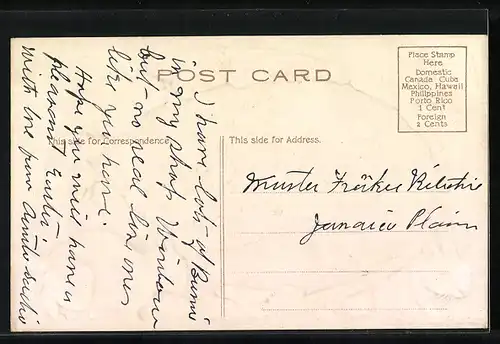 POST CARD
Place Stamp
Here
Domestic
Canada Cuba
Mexico, Hawaii
Philippines
Porto Rico
1 Cent
Foreign
2 Cents
This side for Correspondence
This side for Address.
I have lots of Bunnies
in my shop window
but no real live ones
like you have.
Hope you will have a
pleasant Easter.
With love from
Master
Jamaica Plain